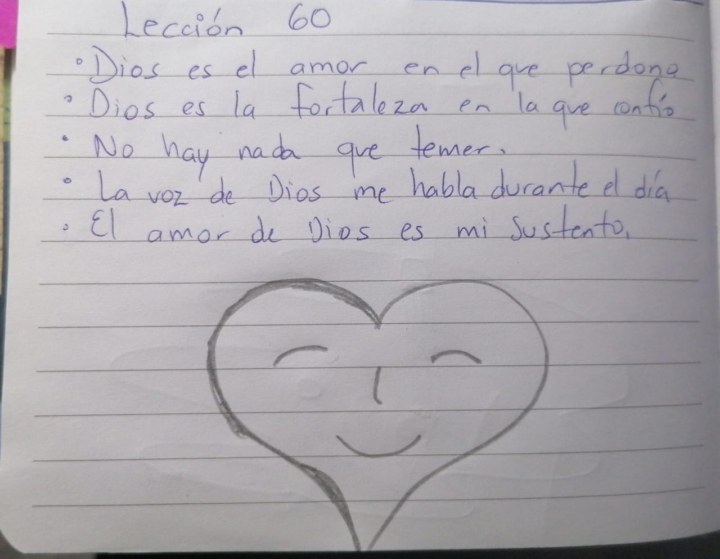 Lección 60
• Dios es el amor en el que perdona
• Dios es la fortaleza en la que confío
• No hay nada que temer.
• La voz de Dios me habla durante el día
• El amor de Dios es mi sustento.